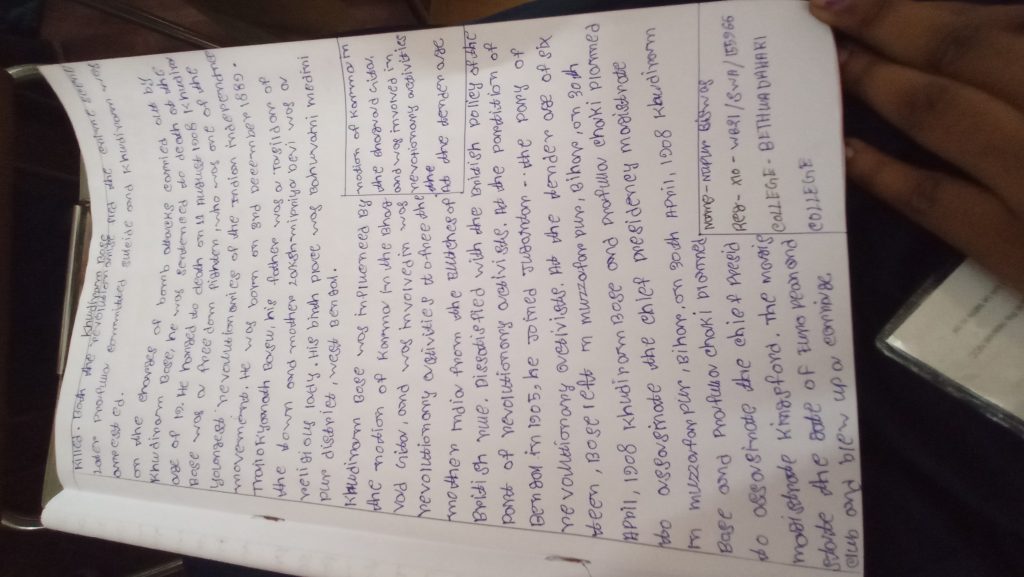 killed. Both the Khudiram Bose
later Prafulla
arrested. committed suicide and Khudiram was
on the charges of bomb attacks carried out by
Khudiram Bose, he was sentenced to death at the
age of 19. He hanged to death on 11 August 1908 Khudiram
Base was a free dom fighter, who was one of the
youngest revolutionaries of the Indian Independence
movement. He was born on 3rd december 1889.
Trailokyanath Basu, his father was a Tasildar of
the town and mother laksmipriya devi was a
religious lady. His birth place was Bahuvaini medini
pur district, West Bengal.
Khudiram Base was influenced by
the notion of Karma in the Bhag
vad Gidar, and was involved in
revolutionary activities to free the
mother India from the clutches of
British rule. Dissatisfied with the British policy of the
part of revolutionary activists. At the partition of
Bengal in 1905, he joined Jugantar - the party of
revolutionary activists. At the tender age of six
teen, Bose left in muzzafarpur, Bihar, on 30th
April, 1908 Khudiram Base and Profullar chaki planned
to assasinate the chief presidency magistrate
in muzzafarpur, Bihar, on 30th April, 1908 Khudiram
Base and Profullar chaki planned
to assasinate the chief Presid
magistrate Kingsford. The movie
the Gate of European and
club and blew up a carriage
notion of Karmar in
the Bhagvad Gidar,
and was involved in
revolutionary activities
the
At the teenage
Name - Nupur Biswas
Reg - no - WB21/SWA/155966
COLLEGE - BETHUADAHARI
COLLEGE